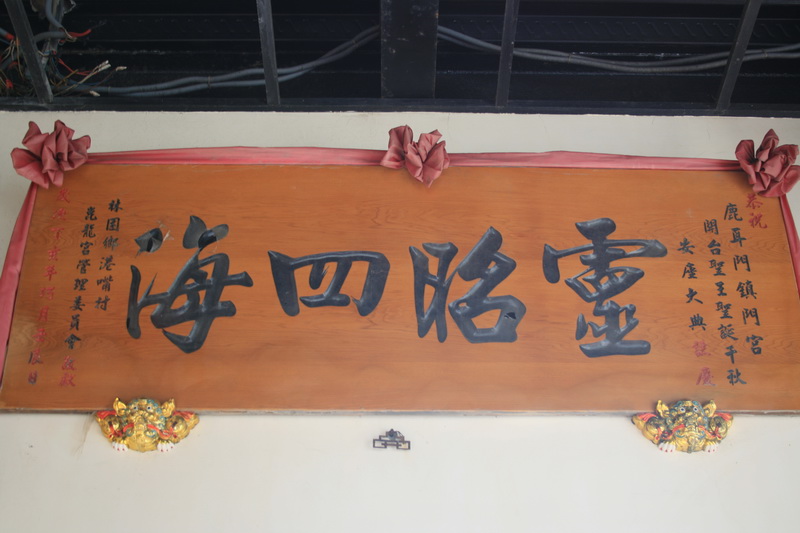 恭祝
鹿耳門鎮門宮
開台聖王聖誕千秋
安座大典誌慶
靈昭四海
林園鄉港嘴村
龍宮管理委員會敬獻